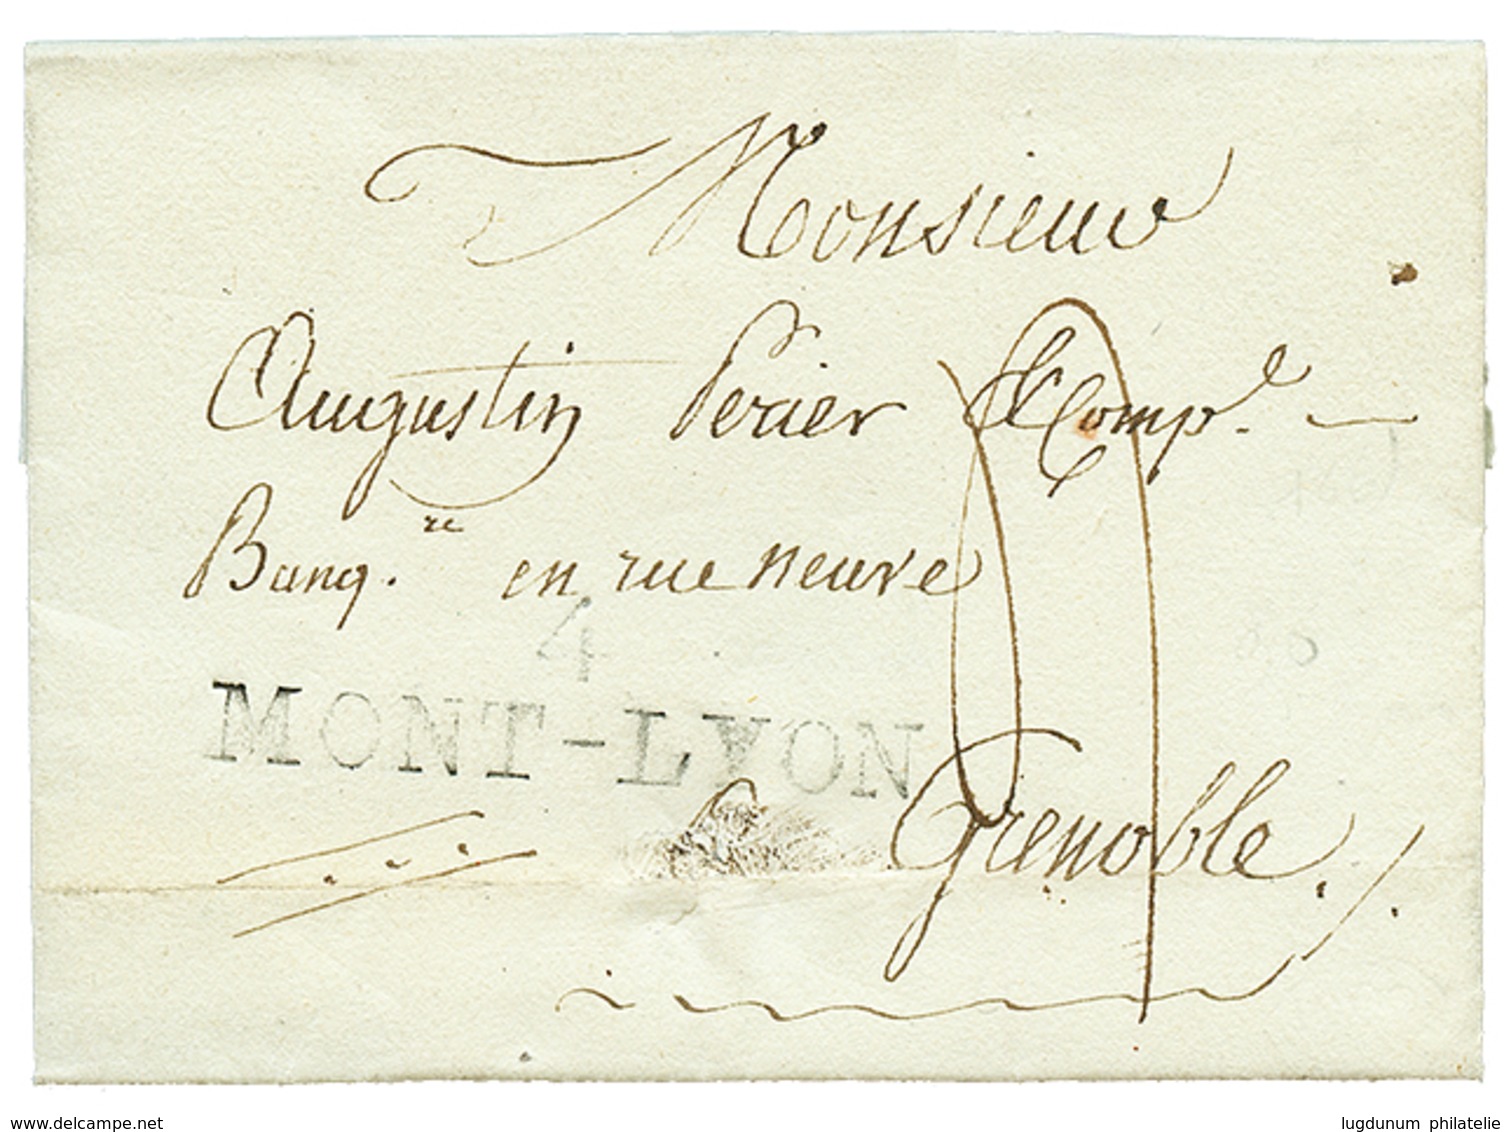 Monsieur
Augustin Perier & Comp.e
Banq.re en rue neuve
4
MONT-LYON
Grenoble
www.delcampe.net
lugdunum philatelie